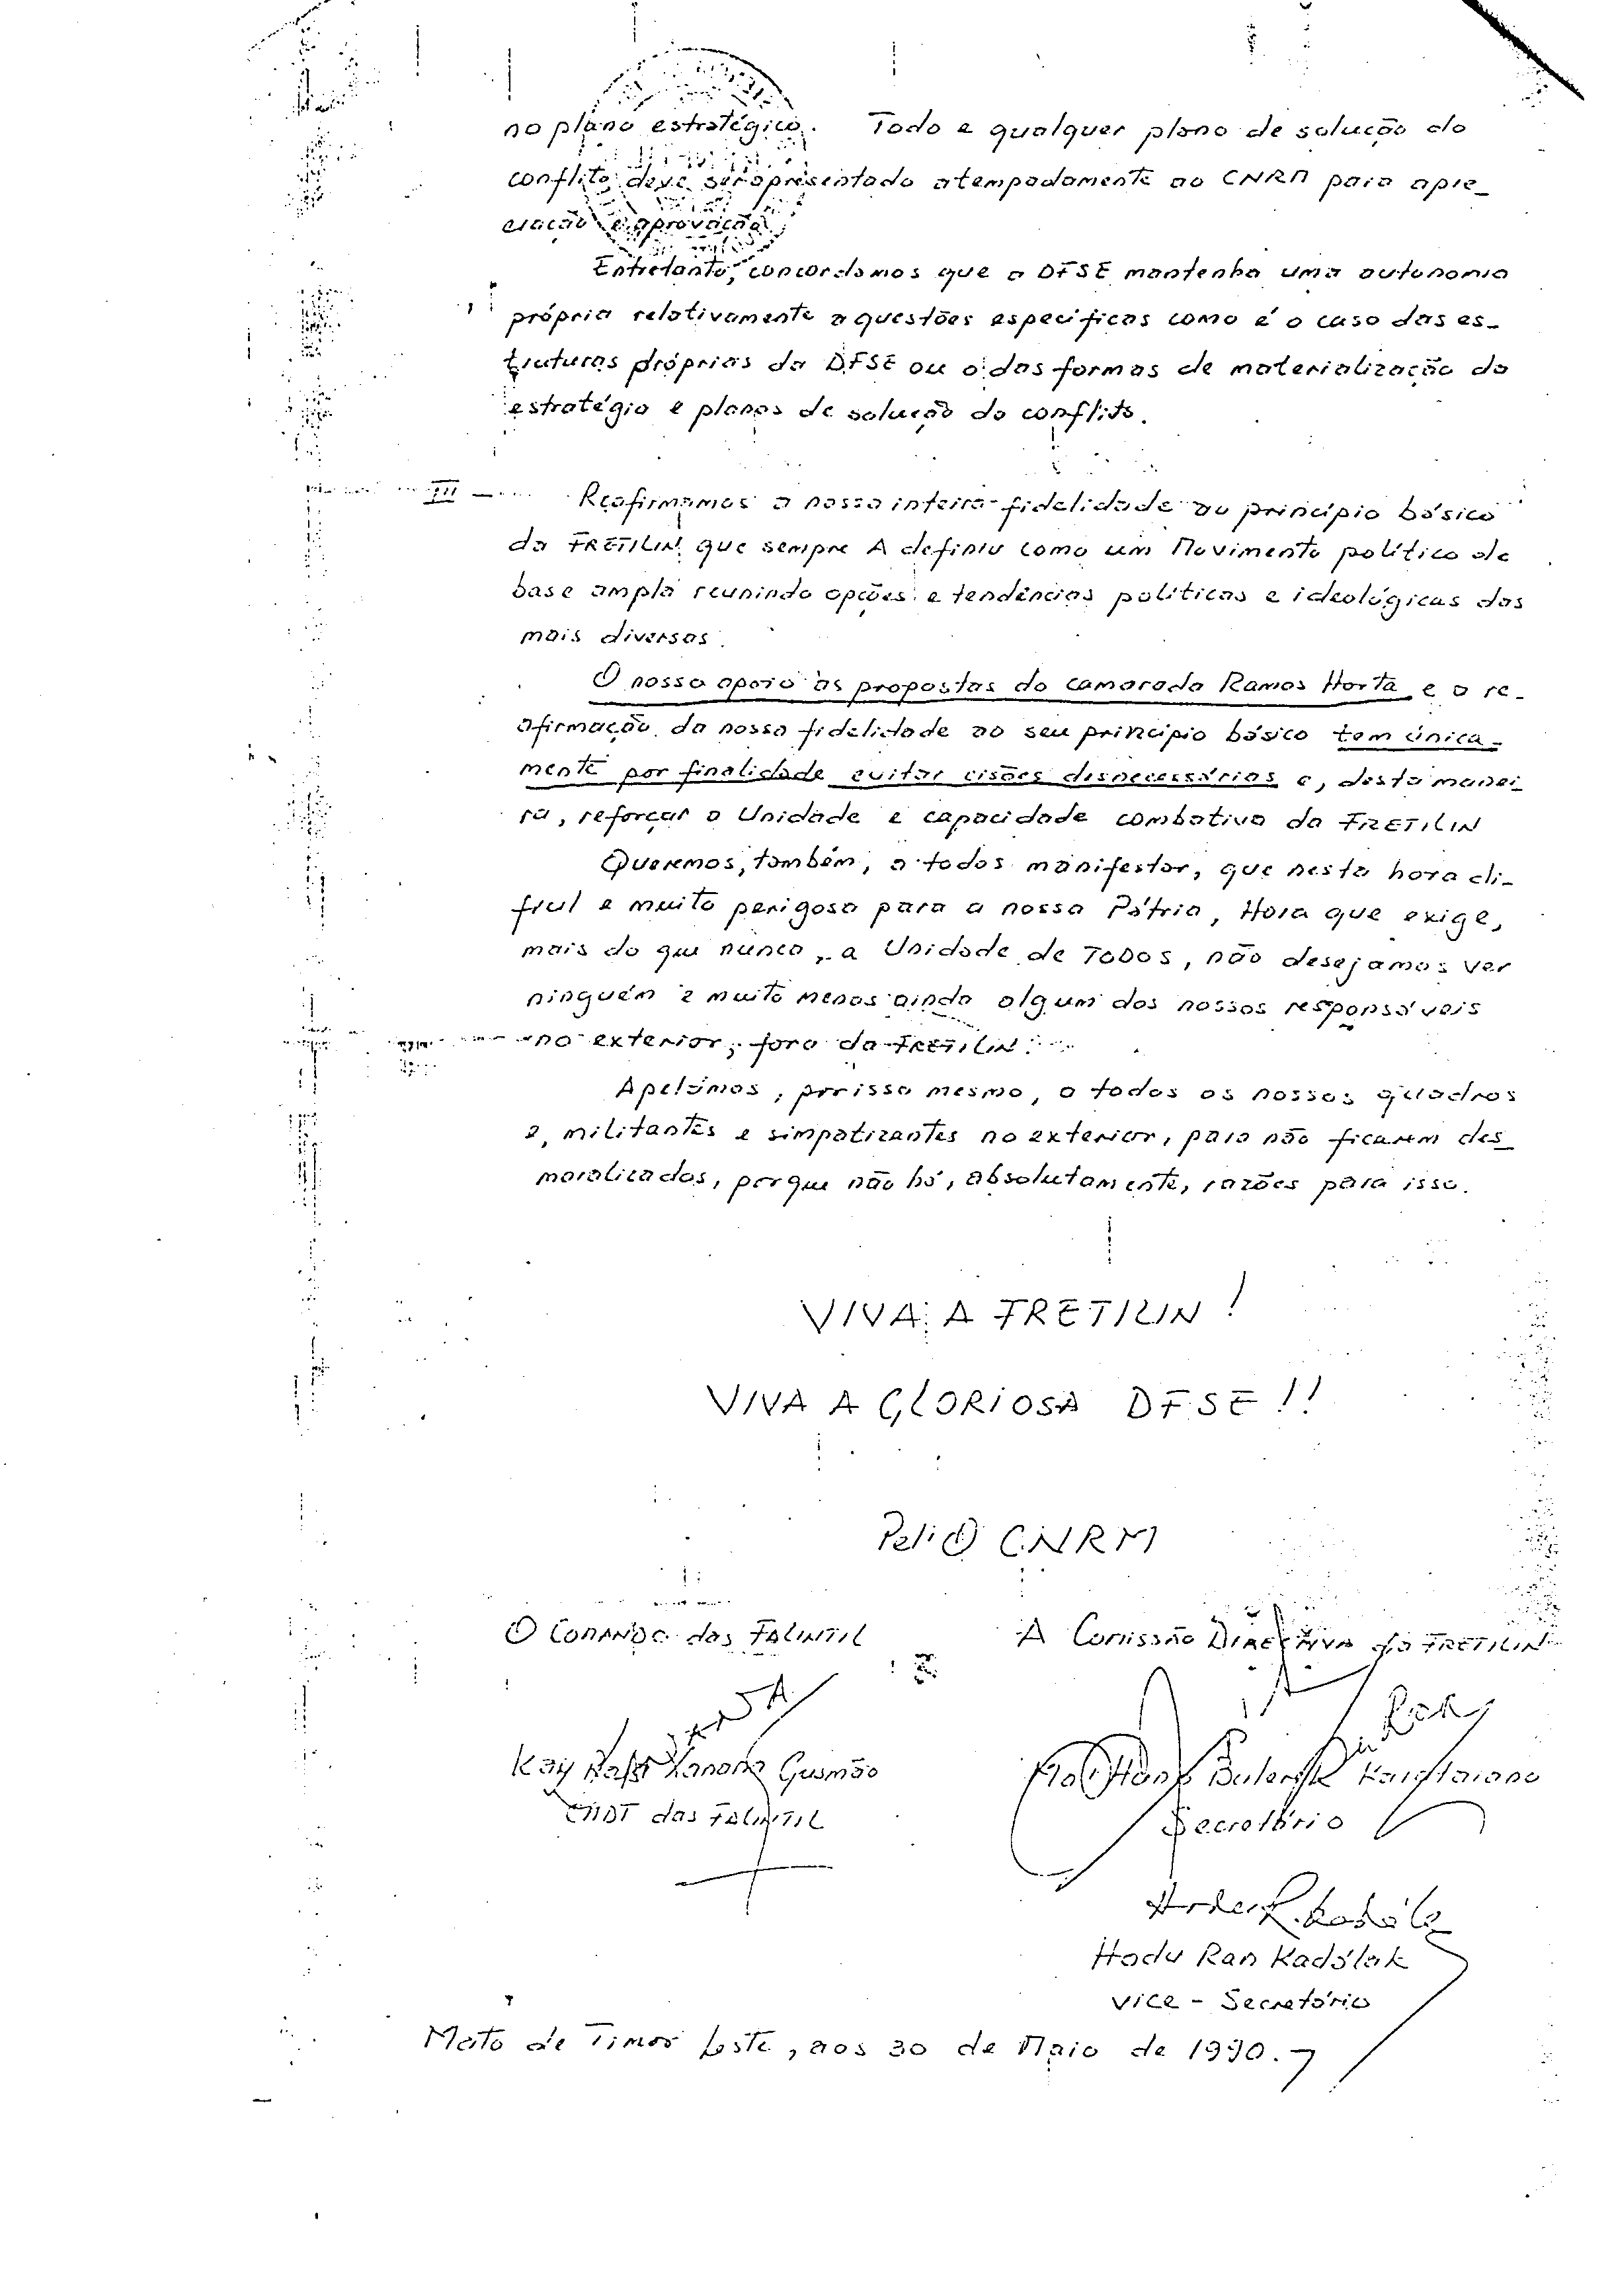 no plano estratégico. Todo e qualquer plano de solução do
conflito deve ser apresentado atempadamente ao CNRM para apre_
ciação e aprovação.
Entretanto, concordamos que a DFSE mantenha uma autonomia
própria relativamente a questões específicas como é o caso das es_
truturas próprias da DFSE ou o das formas de materialização da
estratégia e planos de solução do conflito.
III — Reafirmamos a nossa inteira fidelidade ao princípio básico
da FRETILIN que sempre A definiu como um Movimento político de
base ampla reunindo opções e tendências políticas e ideológicas das
mais diversas.
O nosso apoio às propostas do camarada Ramos Horta e a re_
afirmação da nossa fidelidade ao seu princípio básico tem única_
mente por finalidade evitar cisões desnecessárias e, desta manei_
ra, reforçar a Unidade e capacidade combativa da FRETILIN
Queremos, também, a todos manifestar, que nesta hora di_
fícil e muito perigosa para a nossa Pátria, Hora que exige,
mais do que nunca, a Unidade de TODOS, não desejamos ver
ninguém e muito menos ainda algum dos nossos responsáveis
no exterior, fora da FRETILIN.
Apelamos, por isso mesmo, a todos os nossos quadros
e, militantes e simpatizantes no exterior, para não ficarem des_
moralizados, porque não há, absolutamente, razões para isso.
VIVA A FRETILIN!
VIVA A GLORIOSA DFSE!!
Pel'O CNRM
O Comando das FALINTIL
A Comissão Directiva da FRETILIN
Kay Rala Xanana Gusmão
CMDT das FALINTIL
Secretário
Hodu Ran Kadálak
Vice - Secretário
Mato de Timor Leste, aos 30 de Maio de 1990.